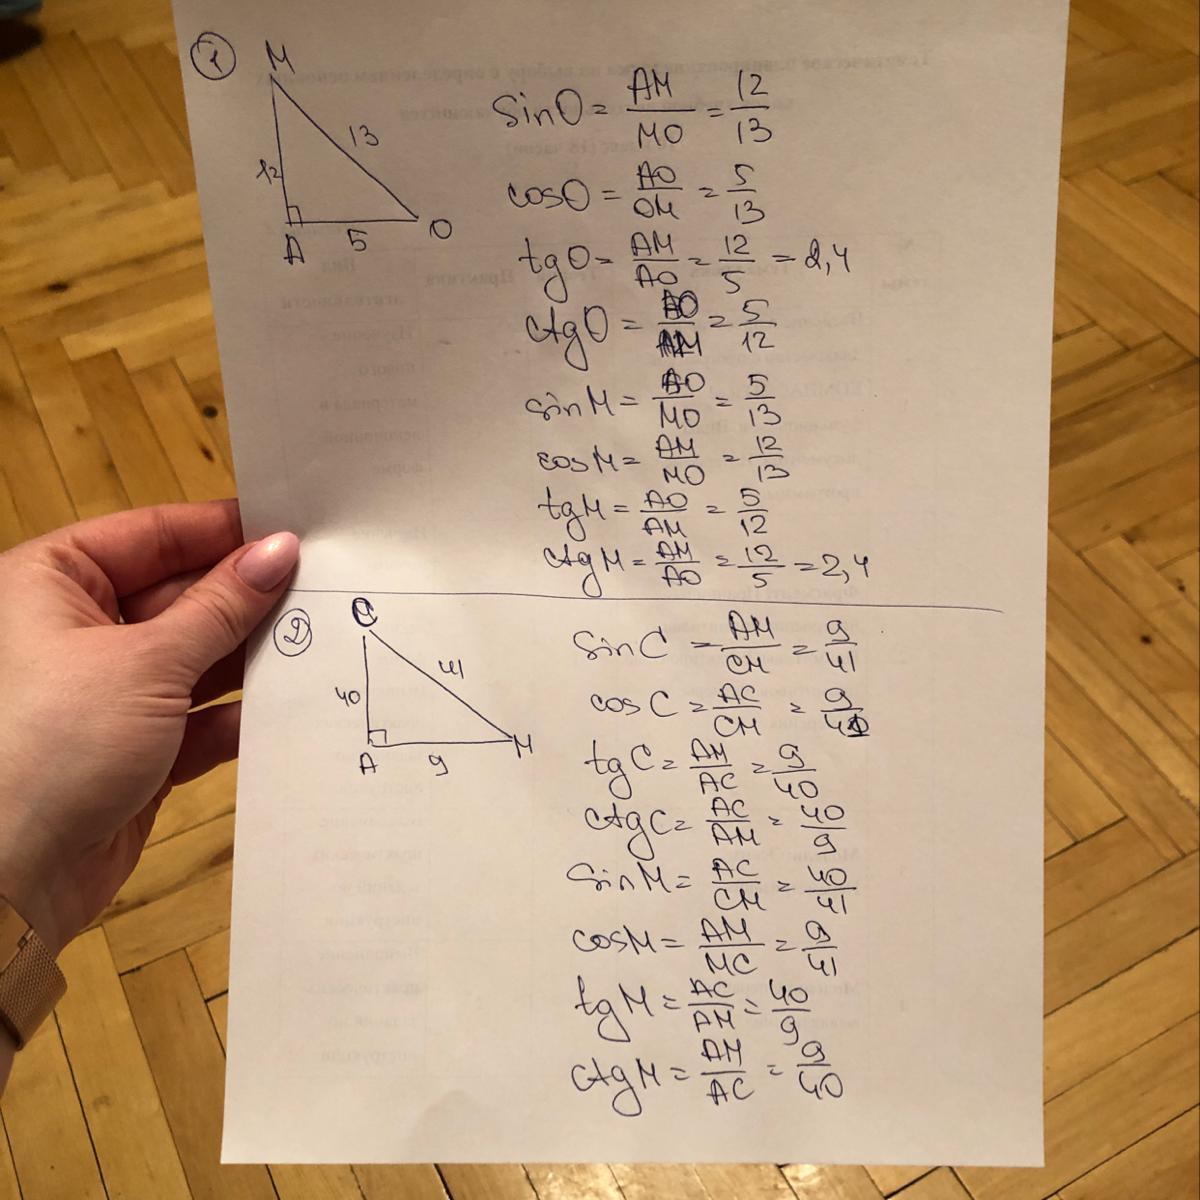 1
M
13
12
A
5
O
sinO = AM/MO = 12/13
cosO = AO/OM = 5/13
tgO = AM/AO = 12/5 = 2,4
ctgO = AO/AM = 5/12
sinM = AO/MO = 5/13
cosM = AM/MO = 12/13
tgM = AO/AM = 5/12
ctgM = AM/AO = 12/5 = 2,4
2
C
41
40
A
9
M
sinC = AM/CM = 9/41
cosC = AC/CM = 9/41
tgC = AM/AC = 9/40
ctgC = AC/AM = 40/9
sinM = AC/CM = 40/41
cosM = AM/MC = 9/41
tgM = AC/AM = 40/9
ctgM = AM/AC = 9/40